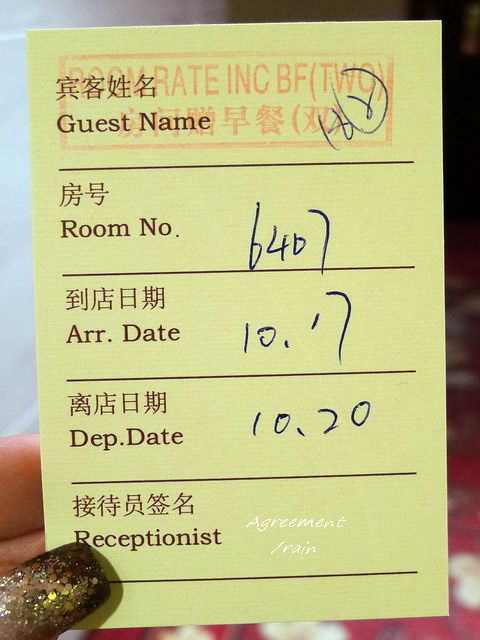 ROOM RATE INC BF(TWO)
房间赠早餐(双)
宾客姓名
Guest Name
房号
Room No. 6407
到店日期
Arr. Date 10.17
离店日期
Dep.Date 10.20
接待员签名
Receptionist
Agreement
/rain